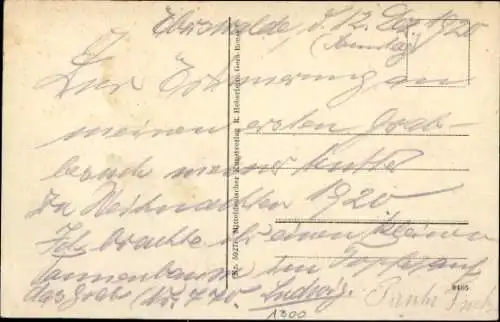 Eberswalde, d. 12. Dez. 1920
(Sonntag)
Zur Erinnerung an
meinen ersten Grab-
besuch meiner Mutter
zu Weihnachten 1920
Ich brachte ihr einen kleinen
Tannenbaum im Topf auf
das Grab (Nr. 775. Ludwig.
Mitteldeutscher Kunstverlag R. Heberlein, Gera-Reuss
9405
1300